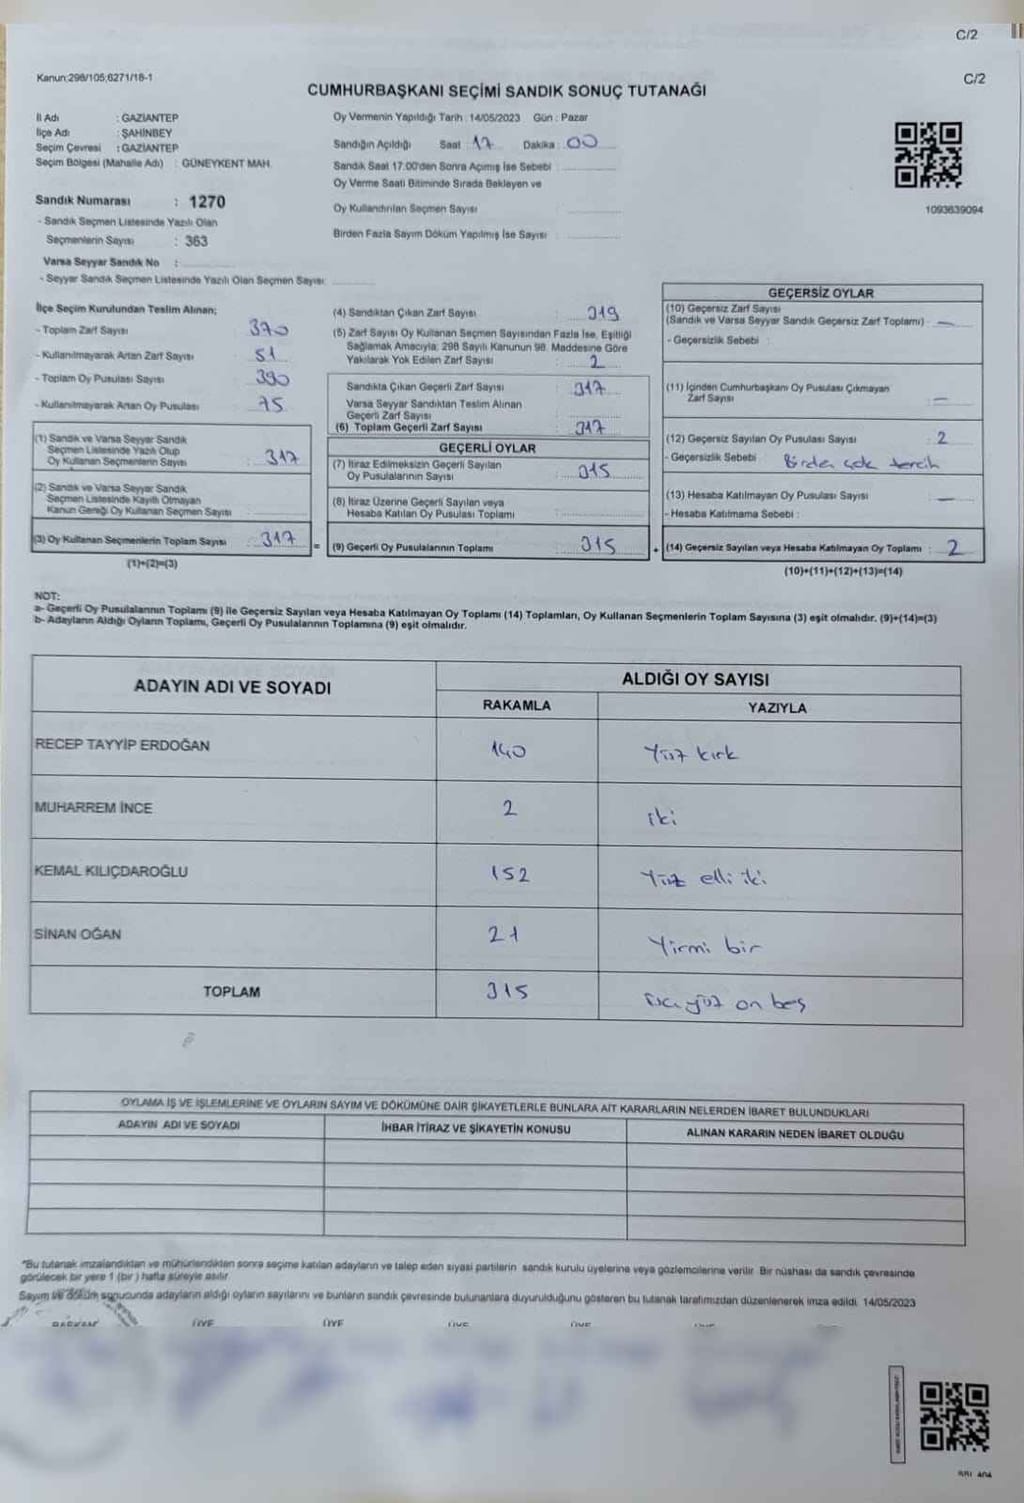 C/2
C/2
Kanun:298/105;6271/18-1
CUMHURBAŞKANI SEÇİMİ SANDIK SONUÇ TUTANAĞI
İl Adı : GAZİANTEP
İlçe Adı : ŞAHİNBEY
Seçim Çevresi : GAZİANTEP
Seçim Bölgesi (Mahalle Adı) : GÜNEYKENT MAH.
Sandık Numarası : 1270
- Sandık Seçmen Listesinde Yazılı Olan
Seçmenlerin Sayısı : 363
Varsa Seyyar Sandık No :
- Seyyar Sandık Seçmen Listesinde Yazılı Olan Seçmen Sayısı:
Oy Vermenin Yapıldığı Tarih : 14/05/2023 Gün : Pazar
Sandığın Açıldığı Saat : 17 Dakika : 00
Sandık Saat 17:00'den Sonra Açımış İse Sebebi :
Oy Verme Saati Bitiminde Sırada Bekleyen ve
Oy Kullandırılan Seçmen Sayısı :
Birden Fazla Sayım Döküm Yapılmış İse Sayısı :
1093639094
İlçe Seçim Kurulundan Teslim Alınan;
- Toplam Zarf Sayısı : 370
- Kullanılmayarak Artan Zarf Sayısı : 51
- Toplam Oy Pusulası Sayısı : 390
- Kullanılmayarak Artan Oy Pusulası : 75
(1) Sandık ve Varsa Seyyar Sandık
Seçmen Listesinde Yazılı Olup
Oy Kullanan Seçmenlerin Sayısı : 317
(2) Sandık ve Varsa Seyyar Sandık
Seçmen Listesinde Kayıtlı Olmayan
Kanun Gereği Oy Kullanan Seçmen Sayısı :
(3) Oy Kullanan Seçmenlerin Toplam Sayısı : 317
(1)+(2)=(3)
(4) Sandıktan Çıkan Zarf Sayısı : 319
(5) Zarf Sayısı Oy Kullanan Seçmen Sayısından Fazla İse, Eşitliği
Sağlamak Amacıyla; 298 Sayılı Kanunun 98. Maddesine Göre
Yakılarak Yok Edilen Zarf Sayısı : 2
Sandıkta Çıkan Geçerli Zarf Sayısı : 317
Varsa Seyyar Sandıktan Teslim Alınan
Geçerli Zarf Sayısı :
(6) Toplam Geçerli Zarf Sayısı : 317
GEÇERLİ OYLAR
(7) İtiraz Edilmeksizin Geçerli Sayılan
Oy Pusulalarının Sayısı : 315
(8) İtiraz Üzerine Geçerli Sayılan veya
Hesaba Katılan Oy Pusulası Toplamı :
= (9) Geçerli Oy Pusulalarının Toplamı : 315
GEÇERSİZ OYLAR
(10) Geçersiz Zarf Sayısı
(Sandık ve Varsa Seyyar Sandık Geçersiz Zarf Toplamı) : —
- Geçersizlik Sebebi :
(11) İçinden Cumhurbaşkanı Oy Pusulası Çıkmayan
Zarf Sayısı : —
(12) Geçersiz Sayılan Oy Pusulası Sayısı : 2
- Geçersizlik Sebebi : Birden çok tercih
(13) Hesaba Katılmayan Oy Pusulası Sayısı : —
- Hesaba Katılmama Sebebi :
+ (14) Geçersiz Sayılan veya Hesaba Katılmayan Oy Toplamı : 2
(10)+(11)+(12)+(13)=(14)
NOT:
a- Geçerli Oy Pusulalarının Toplamı (9) ile Geçersiz Sayılan veya Hesaba Katılmayan Oy Toplamı (14) Toplamları, Oy Kullanan Seçmenlerin Toplam Sayısına (3) eşit olmalıdır. (9)+(14)=(3)
b- Adayların Aldığı Oyların Toplamı, Geçerli Oy Pusulalarının Toplamına (9) eşit olmalıdır.
ADAYIN ADI VE SOYADI
ALDIĞI OY SAYISI
RAKAMLA YAZIYLA
RECEP TAYYİP ERDOĞAN 140 Yüz kırk
MUHARREM İNCE 2 iki
KEMAL KILIÇDAROĞLU 152 Yüz elli iki
SİNAN OĞAN 21 Yirmi bir
TOPLAM 315 üçyüz on beş
OYLAMA İŞ VE İŞLEMLERİNE VE OYLARIN SAYIM VE DÖKÜMÜNE DAİR ŞİKAYETLERLE BUNLARA AİT KARARLARIN NELERDEN İBARET BULUNDUKLARI
ADAYIN ADI VE SOYADI İHBAR İTİRAZ VE ŞİKAYETİN KONUSU ALINAN KARARIN NEDEN İBARET OLDUĞU
"Bu tutanak imzalandıktan ve mühürlendikten sonra seçime katılan adayların ve talep eden siyasi partilerin sandık kurulu üyelerine veya gözlemcilerine verilir. Bir nüshası da sandık çevresinde
görülecek bir yere 1 (bir) hafta süreyle asılır
Sayım ve döküm sonucunda adayların aldığı oyların sayılarını ve bunların sandık çevresinde bulunanlara duyurulduğunu gösteren bu tutanak tarafımızdan düzenlenerek imza edildi. 14/05/2023
BAŞKAN ÜYE ÜYE ÜYE ÜYE ÜYE